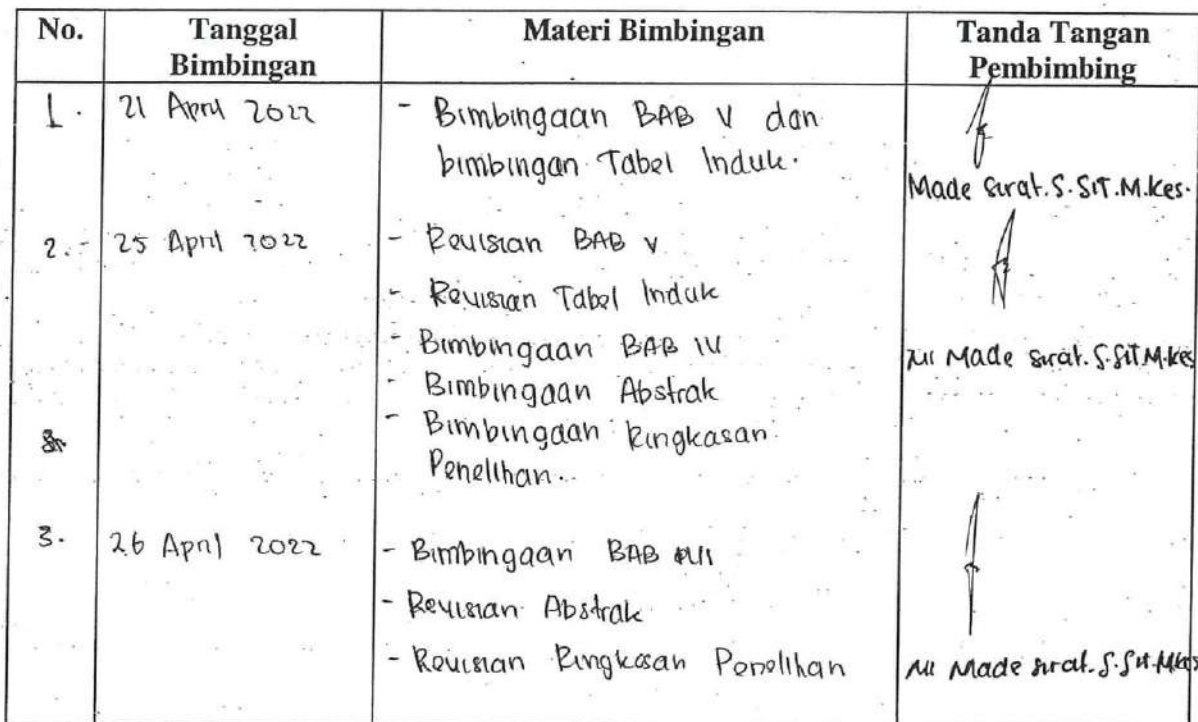 No. Tanggal Bimbingan Materi Bimbingan Tanda Tangan Pembimbing
1. 21 April 2022 - Bimbingaan BAB V dan
bimbingan Tabel Induk.
Made Sirat. S.SiT.M.Kes.
2. 25 April 2022 - Revisian BAB V
- Revisian Tabel Induk
- Bimbingaan BAB IV
Ni Made Sirat. S.SiT M.Kes
- Bimbingaan Abstrak
- Bimbingaan Ringkasan
Penelitian.
3. 26 April 2022 - Bimbingaan BAB
- Revisian Abstrak
- Revisian Ringkasan Penelitian Ni Made Sirat. S.SiT.M.Kes